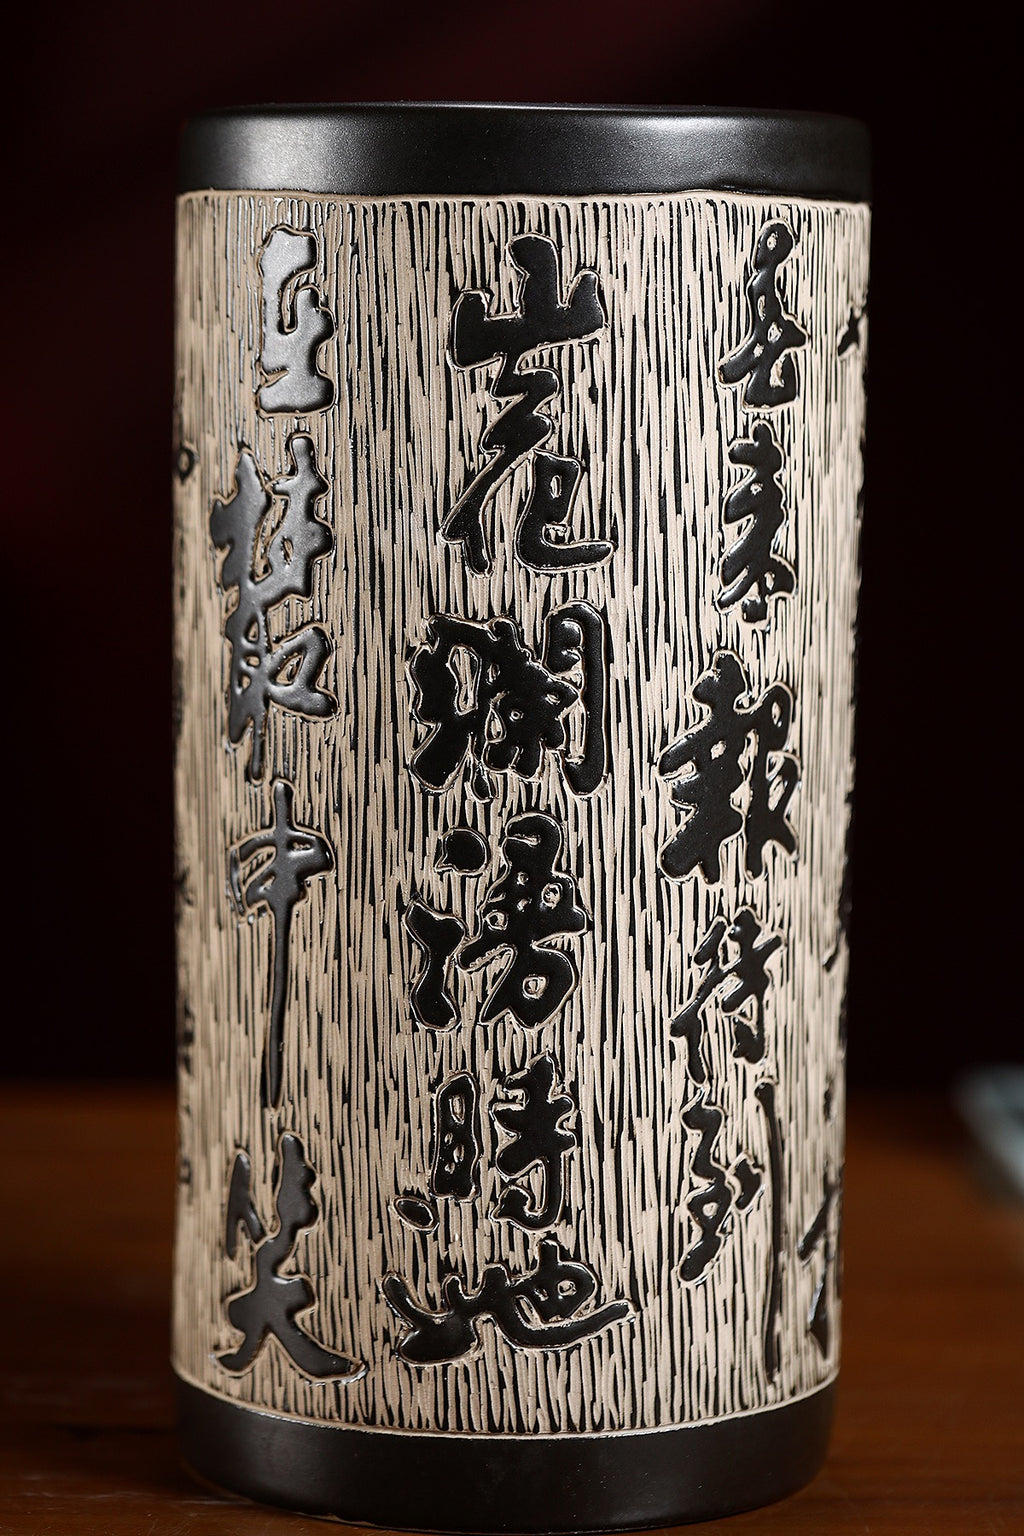 春来報待到
山花爛漫時她
在叢中笑